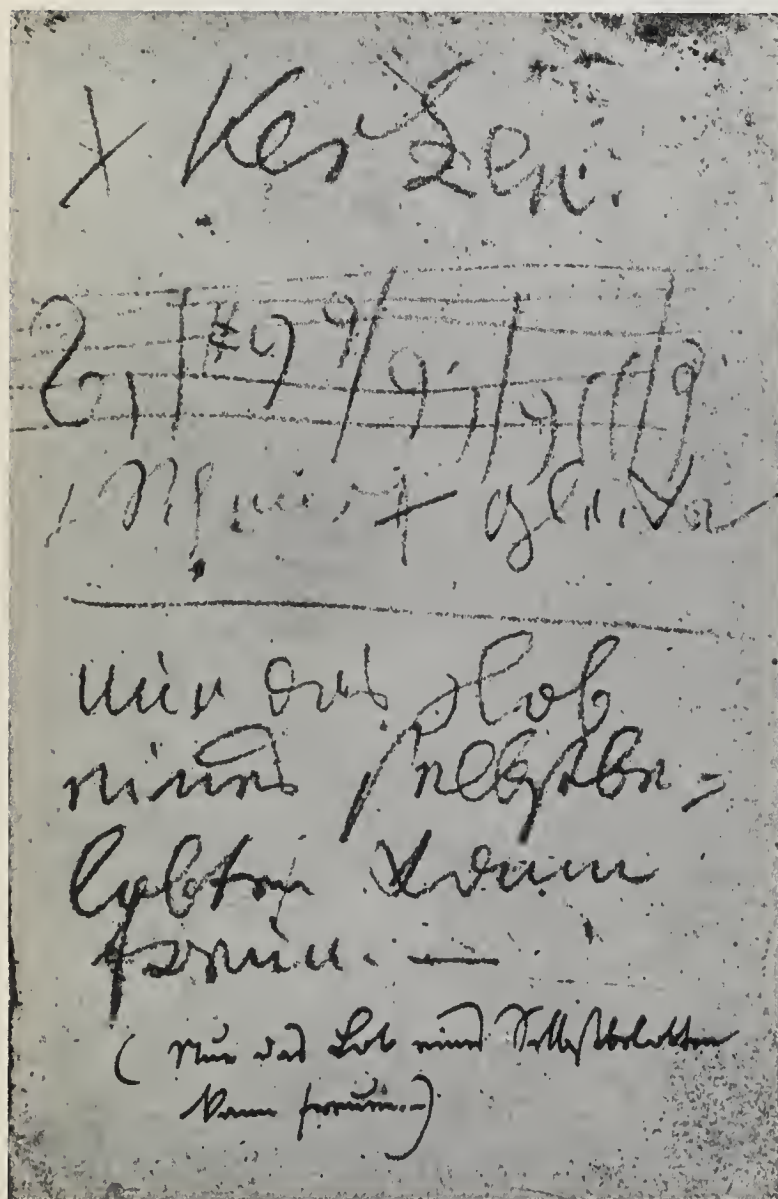 + Kerzen.
nur das Lob
eines selbstbe=
lobten kann
freuen. —
(Nur das Lob eines Selbstbelobten
kann freuen.—)